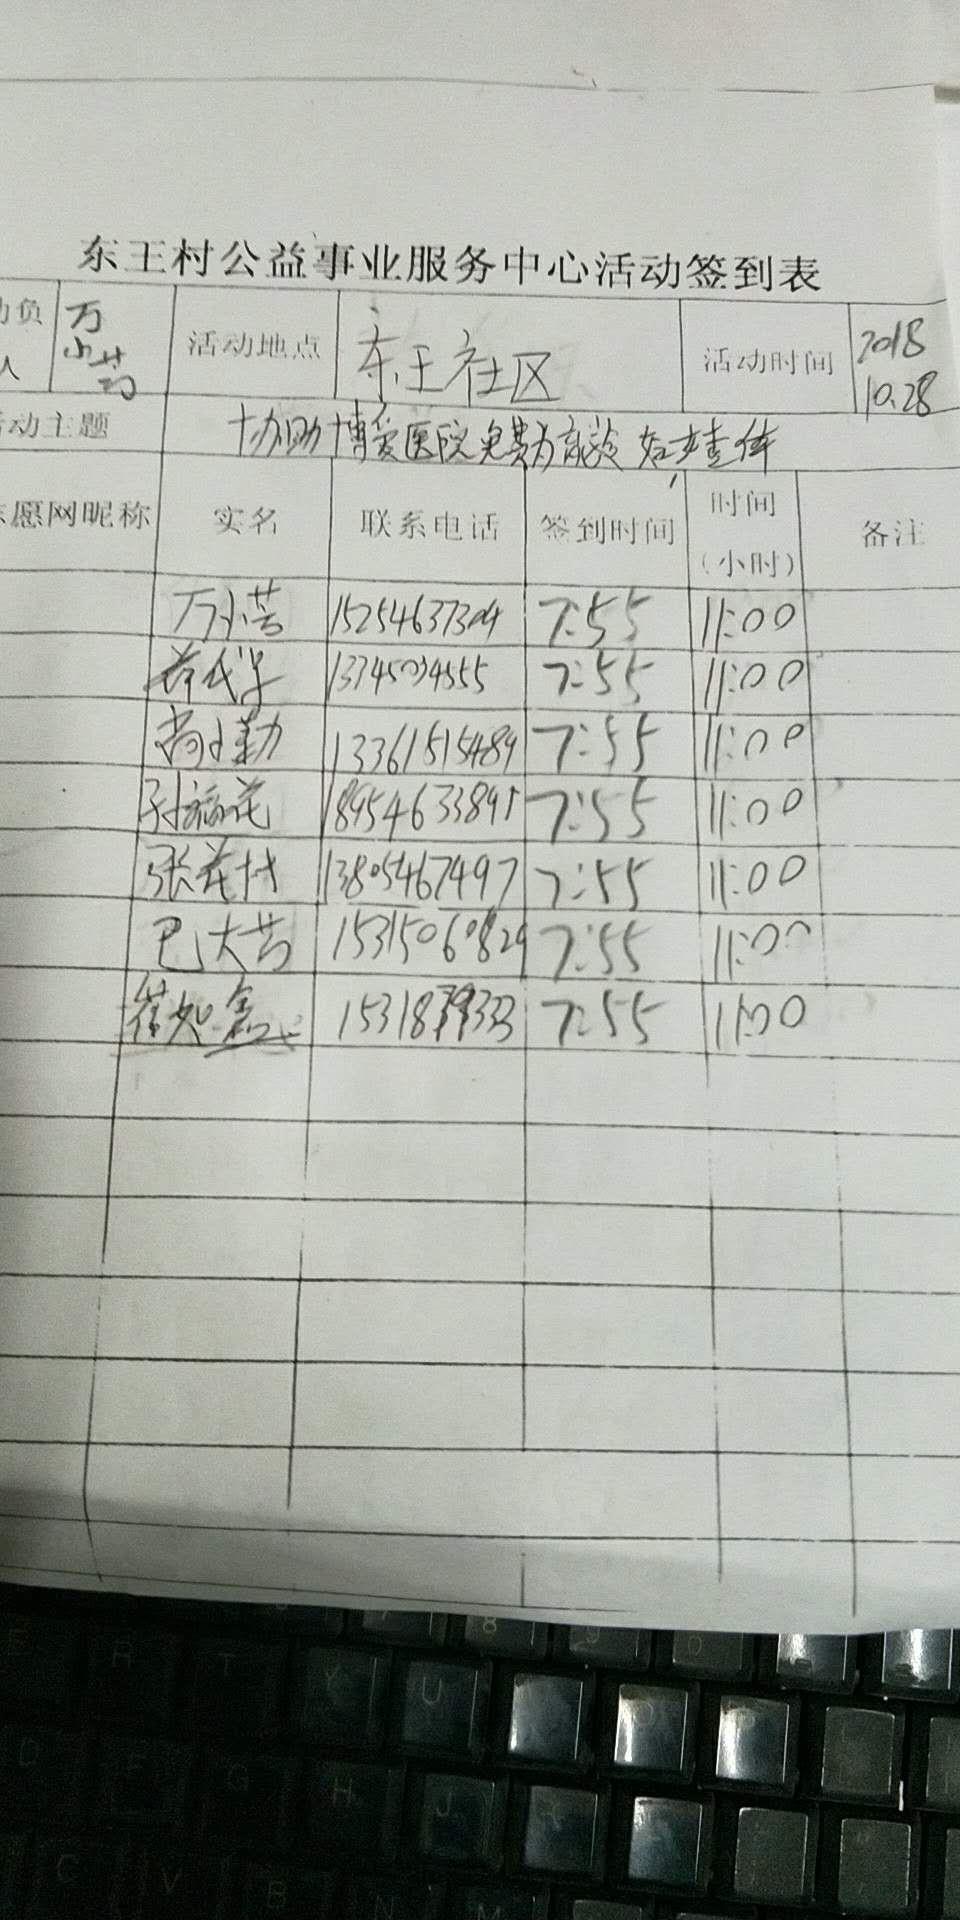 东王村公益事业服务中心活动签到表
动负 万小芸 活动地点 东王社区 活动时间 2018
人 10.28
活动主题 协助博爱医院免费为育龄妇女查体
志愿网昵称 实名 联系电话 签到时间 时间（小时） 备注
万小芸 15254637304 7:55 11:00
13745034555 7:55 11:00
尚小勤 13361515489 7:55 11:00
孙福花 18954633891 7:55 11:00
张花村 13805467497 7:55 11:00
巴大芸 15315060829 7:55 11:00
崔如 7:55 11:00
7 8 9 0
E R T Y U I O P
D F G H J K L
C V B N M